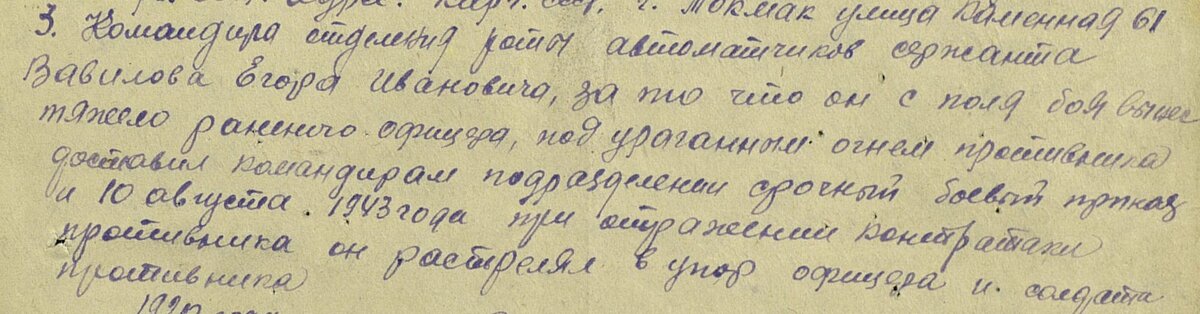 г. Токмак улица Каменная 61
3. Командира отделения роты автоматчиков сержанта
Вавилова Егора Ивановича, за то что он с поля боя вынес
тяжело раненого офицера, под ураганным огнем противника
доставил командирам подразделении срочный боевый приказ
и 10 августа 1943 года при отражении контратаки
противника он растрелял в упор офицера и солдата
противника